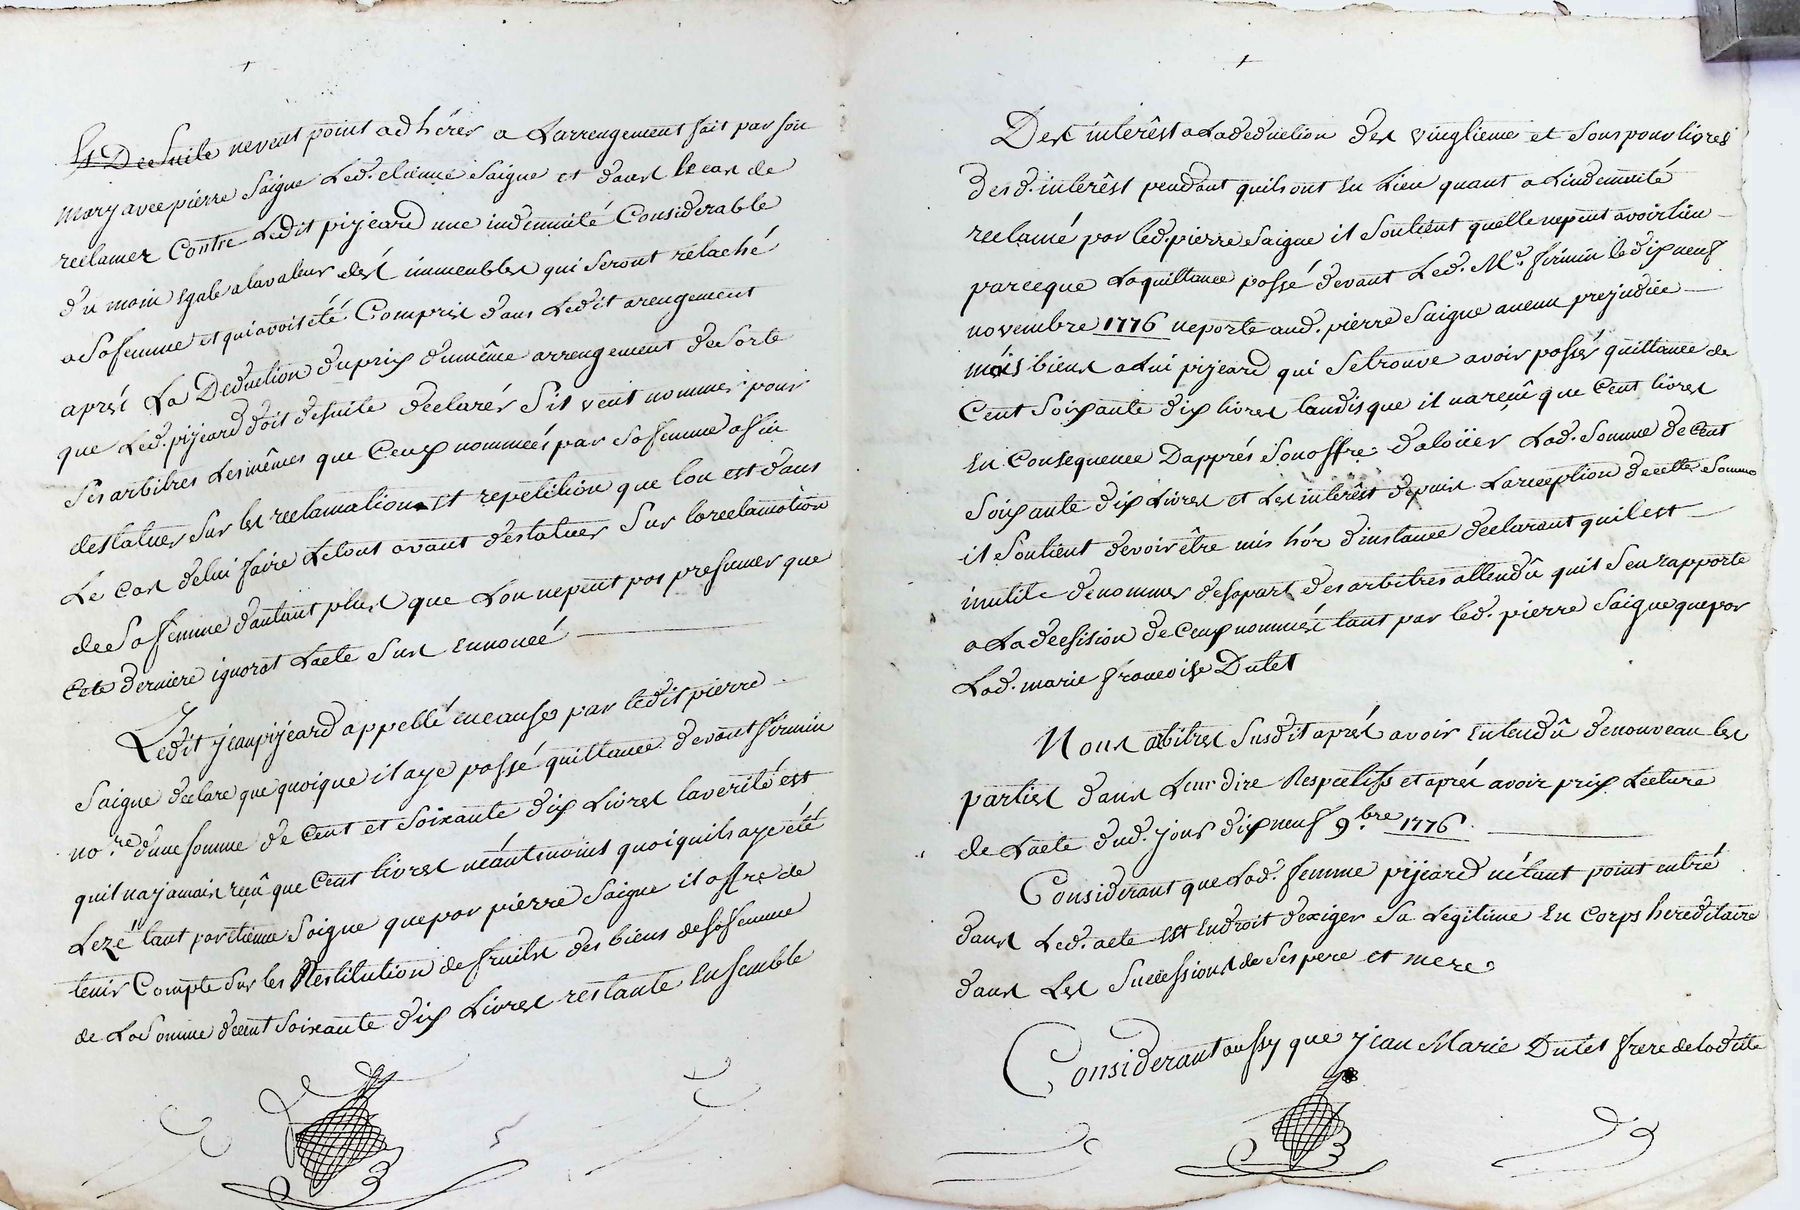 Et De Suite ne veut point adhérer a Larrengement fait par son
mary avec pierre Saigne Led. etienne Saigne et dans le cas de
reclamer Contre Ledit pijeard une indemnité Considerable
du moin egale a la valeur des immeubles qui seront relaché
a Sa femme et qui avoit été Compris dans Ledit arengement
aprés La Deduction du prix du même arrengement de Sorte
que Led. pijeard doit de suite declarér S'il veut nommer pour
Ses arbitres Les mêmes que Ceux nommeés par Sa femme afin
de statuer Sur les reclamations et repetition que lon est dans
Le cas de lui faire Le tout avant de statuer Sur la reclamation
de Sa femme d'autant plus que Lon ne peut pas presumer que
Cete derniere ignorat Lacte Sus Ennonceé
Ledit jean pijeard appellé en cause par ledit pierre
Saigne declare que quoique il aye passé quittance devant firmin
no.re d'une somme de Cent et Soixante dix Livres la verité est
quil na jamais reçû que Cent livres néantmoins quoiquils aye été
Lezé tant par etienne Saigne que par pierre Saigne il offre de
tenir Compte Sur les Restitution de fruits des biens de Sa femme
de La Somme de cent Soixante dix Livres restante Ensemble
Des intérêst a La deduction des vingtieme et Sous pour livres
Des d. interêst pendant quils ont eu Lieu quant a Lindemnité
reclamé par led. pierre Saigne il Soutient quelle ne peut avoir lieu
parceque La quittance passé devant Led. Me. firmin le dix neuf
novembre 1776 ne porte aud. pierre Saigne aucun prejudice
mais bien a Lui pijeard qui Se trouve avoir passér quittance de
Cent Soixante dix livres tandisque il na reçû que Cent livres
En Consequence Dapprés Son offre d'aloüer Lad. Somme de Cent
Soixante dix Livres et Les intérêst depuis La reception de cette Somme
il Soutient devoir être mis hór d'instance declarant quil est
inutile de nommer de Sa part des arbitres attendû quil S'en rapporte
a La decision de Ceux nommés tant par led. pierre Saigne que par
Lad. marie francoise Dutet
Nous abitres Susdit aprés avoir Entendû de nouveau les
parties dans Leur dire Respectifs et aprés avoir prix Lecture
de Lacte dud. jour dix neuf 9.bre 1776.
Considerant que Lad. femme pijeard n'étant point entré
dans Led. acte est En droit d'exiger Sa Legitime En corps hereditaire
dans Les Successions de Ses pere et mere
Considerant aussy que jean Marie Dutet frere de ladite